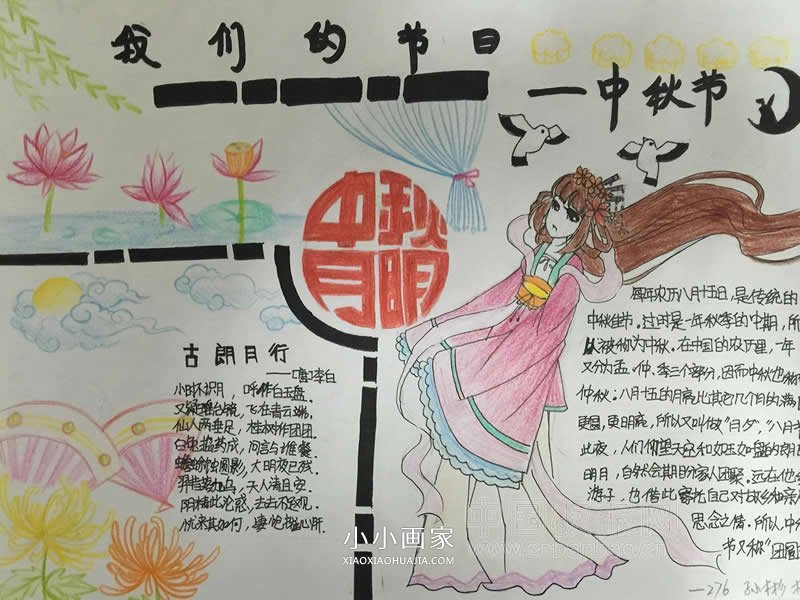 我们的节日
一中秋节
中秋
月明
古朗月行
——[唐]李白
小时不识月，呼作白玉盘.
又疑瑶台镜，飞在青云端.
仙人两垂足，桂树作团团.
白兔捣药成，问言与谁餐.
蟾蜍蚀圆影，大明夜已残.
羿昔落九乌，天人清且安.
阴精此沦惑，去去不足观.
忧来其如何，凄怆摧心肝.
每年农历八月十五日，是传统的
中秋佳节.这时是一年秋季的中期，所
以被称为中秋.在中国的农历里，一年
又分为孟、仲、季三个部分，因而中秋也称
仲秋.八月十五的月亮比其它几个月的满月
更圆，更明亮，所以又叫做"月夕"，"八月节
此夜，人们仰望天空如玉如盘的朗
明月，自然会期盼家人团聚.远在他
游子，也借此寄托自己对故乡和亲人
思念之情.所以，中秋
节又称"团圆
小小画家
XIAOXIAOHUAJIA.COM
—276